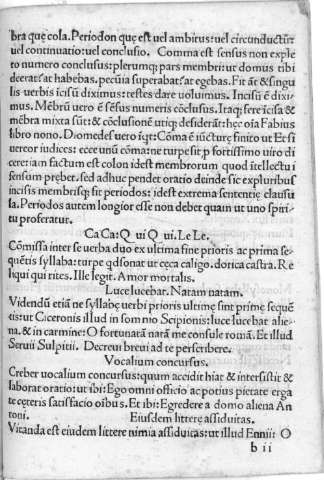 bra quę cola. Periodon quę est uel ambitus: uel circunductũ
uel continuatio: uel conclusio. Comma est sensus non exple
to numero conclusus: plerumq; pars membri: ut domus tibi
deerat: at habebas. pecũia superabat: at egebas. Fit ãt & singu
lis uerbis icisũ diximus: testes dare uolumus. Incisũ ẽ dixi
mus. Mẽbrũ uero ẽ sẽsus numeris cõclusus. Itaq; fere icisa &
mẽbra mixta sũt: & cõclusionẽ utiq; desiderãt: hęc oĩa Fabius
libro nono. Diomedes uero iqt: Cõma ẽ iũcturę finito ut Et si
uereor iudices: ecce unũ cõma: ne turpe sit p fortissimo uiro di
cere: iam factum est colon idest membrorum quod itellectu i
sensum pręber. sed adhuc pendet oratio deinde sic expluribus
incisis membrisq; fit periodos: idest extrema sententię clausu
la. Periodos autem longior esse non debet quam ut uno spiri
tu proferatur.
Ca Ca: Q ui Q ui. Le Le.
Cõmissa inter se uerba duo ex ultima fine prioris ac prima se
quẽtis syllaba: turpe qd sonat ut cęca caligo. dorica castra. Re
liqui qui rites. Ille legit. Amor mortalis.
Luce lucebat. Natam natam.
Videndũ etiã ne syllabę uerbi prioris ultimę sint primę sequẽ
tis: ut Ciceronis illud in somnio Scipionis: luce lucebat alie
na. & in carmine: O fortunatã natã me consule romã. Et illud
Seruii Sulpitii. Decreui breui ad te perscribere.
Vocalium concursus.
Creber uocalium concursus: quum accidit hiat & intersistit &
laborat oratio: ut ibi: Ego omni officio ac potius pietate erga
te cęteris satisfacio oĩbus. Et ibi: Egredere a domo aliena An
toni. Eiusdem litterę assiduitas.
Vitanda est eiusdem litterę nimia assiduitas: ut illud Ennii: O
b ii